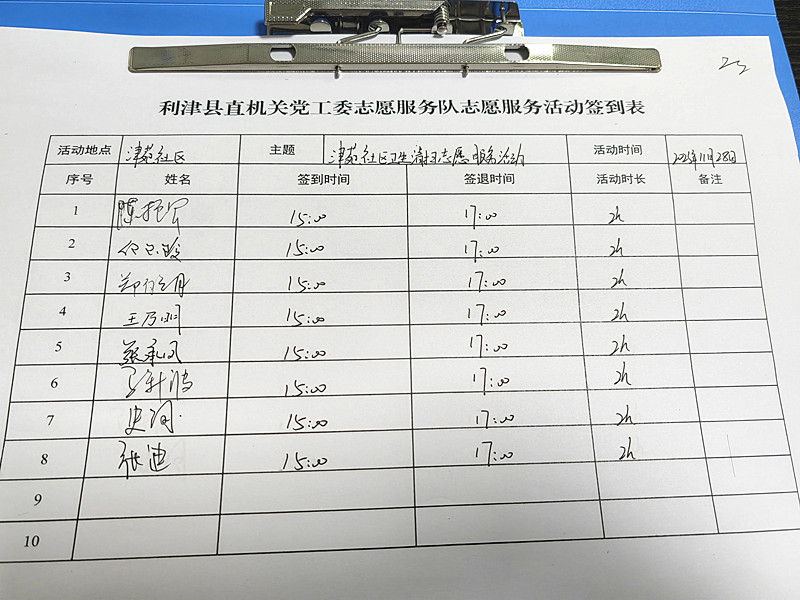 23
利津县直机关党工委志愿服务队志愿服务活动签到表
活动地点 津苑社区 主题 津苑社区卫生清扫志愿服务活动 活动时间 2025年11月28日
序号 姓名 签到时间 签退时间 活动时长 备注
1 陈 15:00 17:00 2h
2 15:00 17:00 2h
3 15:00 17:00 2h
4 王乃 15:00 17:00 2h
5 张承凤 15:00 17:00 2h
6 15:00 17:00 2h
7 史 15:00 17:00 2h
8 张迪 15:00 17:00 2h
9
10